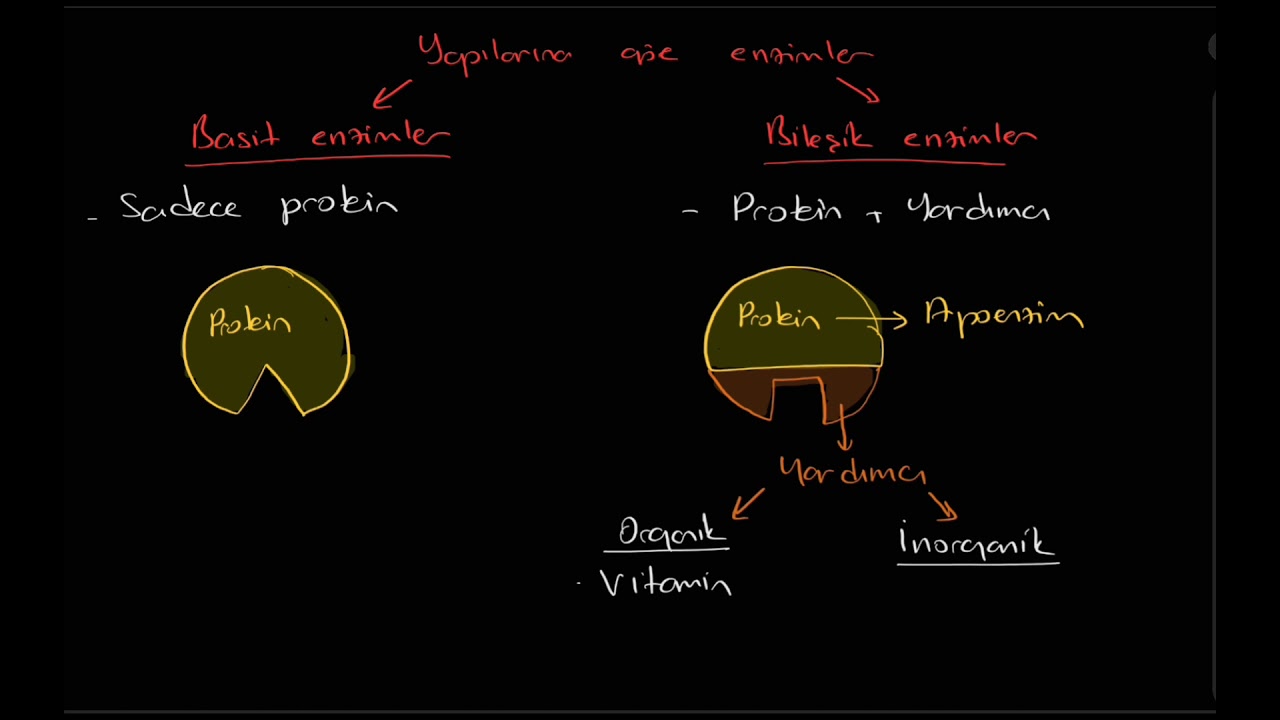 Yapılarına göre enzimler
Basit enzimler
Bileşik enzimler
- Sadece protein
- Protein + Yardımcı
Protein
Protein
Apoenzim
Yardımcı
Organik
İnorganik
· Vitamin